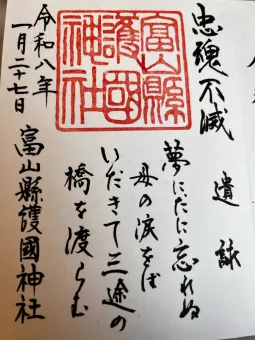 忠魂不滅
遺詠
夢にたに忘れぬ
母の涙をば
いだきて三途の
橋を渡らむ
富山縣
護國
神社
富山縣護國神社
令和八年
一月二十七日